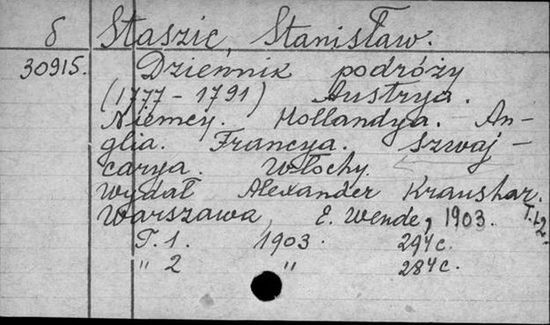 б Staszic, Stanisław.
30915. Dziennik podróży
(1777 - 1791) Austrya.
Niemcy. Hollandya. An-
glia. Francya. Szwaj-
carya. Włochy.
wydał Alexander Kraushar.
Warszawa, E. Wende, 1903. T. 1-2.
T. 1. 1903. 294c.
" 2 " 284c.